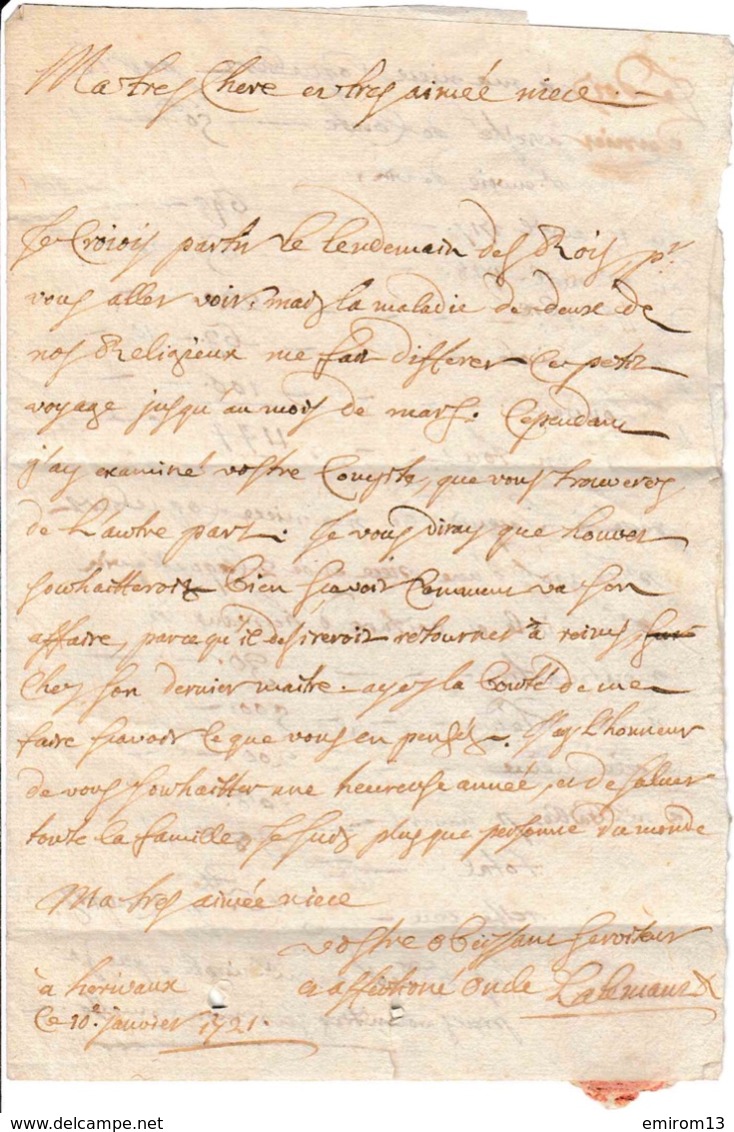 Ma tres Chere et tres aimée niece.
Je croiois partir le lendemain des Rois pr
vous aller voir, mais la maladie de deux de
nos Religieux me fait differer ce petit
voyage jusqu'au mois de mars. Cependant
j'ay examiné vostre Compte, que vous trouveres
de l'autre part. Je vous diray que houvet
souhaitteroit bien scavoir comment va son
affaire, parce qu'il desireroit retourner à reims
ches son dernier maitre. ayes la bonté de me
faire scavoir ce que vous en pensés. J'ay l'honneur
de vous souhaitter une heureuse année, et de saluer
toute la famille, Je suis plus que personne du monde
Ma tres aimée niece
vostre obeissant serviteur
à herivaux et affectioné oncle Lalemant
Ce 10e janvier 1721.
emirom13